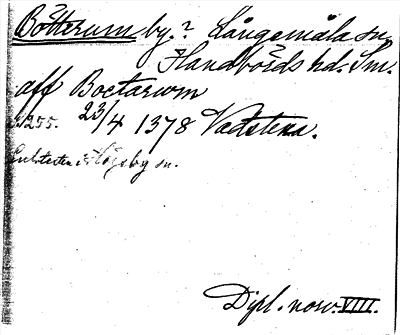 Bötterum by.? Långemåla sn.
Handbörds hd. Sm.
aff Boctarum
255. 23/4 1378 Vadstena.
i Högsby sn.
Dipl. norv. VIII.